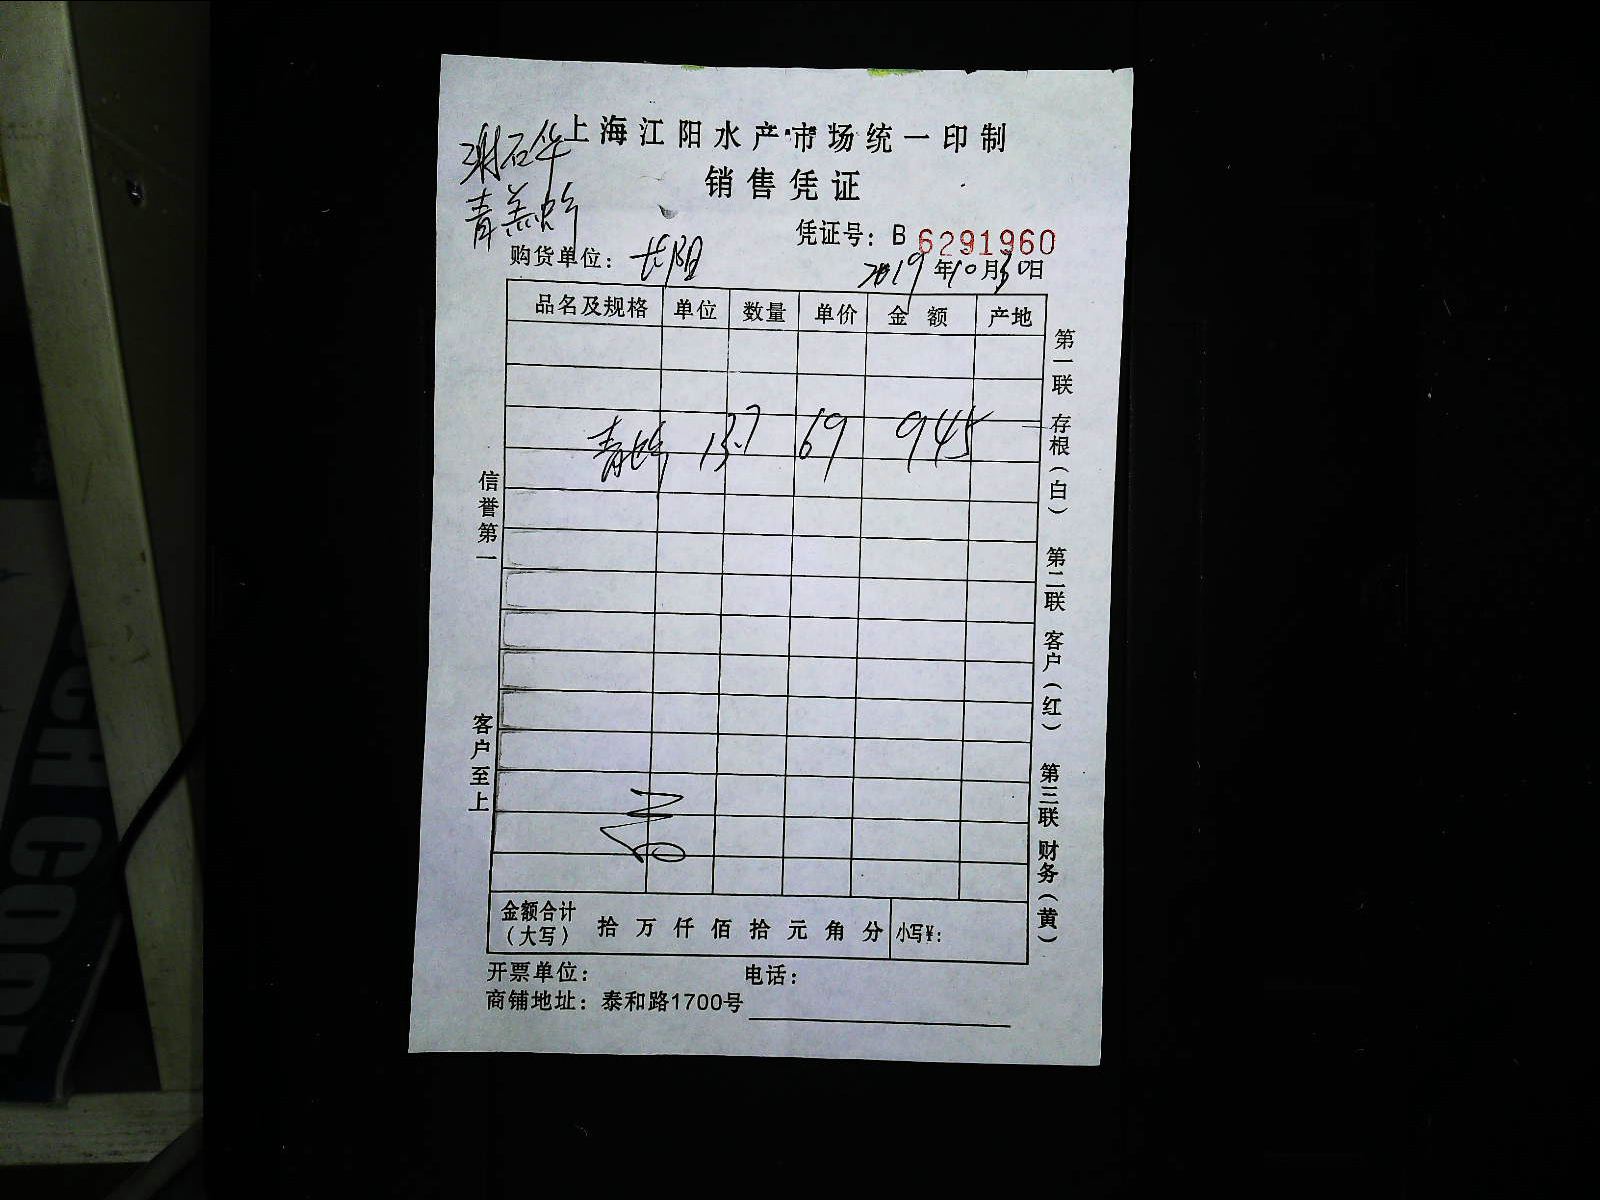 谢石华
上海江阳水产市场统一印制
销售凭证
凭证号：B 6291960
购货单位：长阳
2019年10月30日
品名及规格 单位 数量 单价 金额 产地
13.7 69 945
金额合计（大写） 拾 万 仟 佰 拾 元 角 分 小写¥：
开票单位： 电话：
商铺地址：泰和路1700号
信誉第一
客户至上
第一联 存根（白）
第二联 客户（红）
第三联 财务（黄）